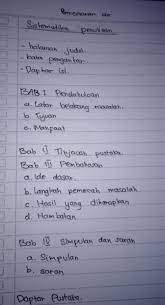 Sistematika penulisan
- halaman judul
- kata pengantar
- Daptar isi
BAB I Pendahuluan
a. Latar belakang masalah.
b. Tujuan
c. Manpaat
Bab II Tinjauan pustaka
Bab III Pembahasan
a. Ide dasar
b. Langkah pemecah masalah
c. Hasil yang diharapkan
d. Hambatan
Bab IV Simpulan dan saran
a. Simpulan
b. saran
Daptar Pustaka